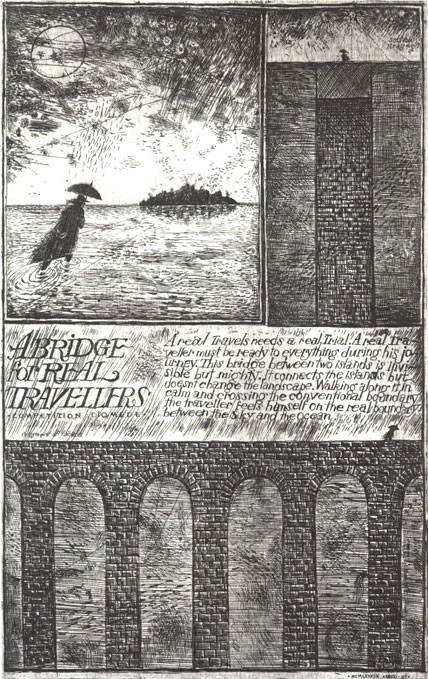 A BRIDGE
for REAL
TRAVELLERS
A real Travels needs a real Trial. A real Tra-
veller must be ready to everything during his jo-
urney. This bridge between two islands is invi-
sible but mighty. It connects the islands but
doesnt change the landscape. Walking along it in
calm and crossing the conventional boundary
the traveller feels himself on the real boundary
between the Sky and the ocean.
COMPETITION